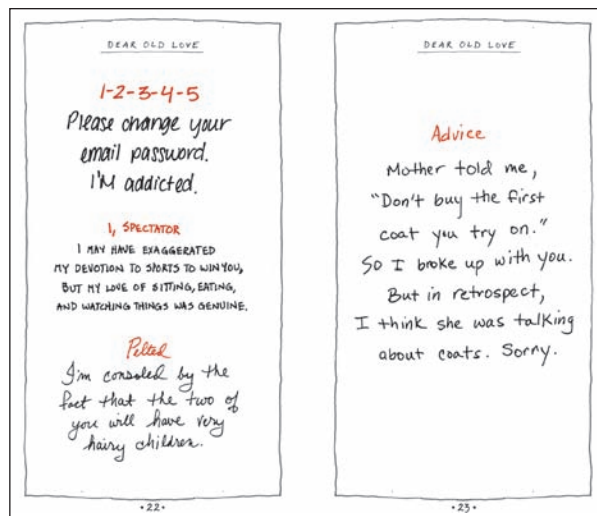 DEAR OLD LOVE
1-2-3-4-5
Please change your
email password.
I'M addicted.
I, SPECTATOR
I MAY HAVE EXAGGERATED
MY DEVOTION TO SPORTS TO WIN YOU,
BUT MY LOVE OF SITTING, EATING,
AND WATCHING THINGS WAS GENUINE.
Pelted
I'm consoled by the
fact that the two of
you will have very
hairy children.
•22•
DEAR OLD LOVE
Advice
Mother told me,
"Don't buy the first
coat you try on."
So I broke up with you.
But in retrospect,
I think she was talking
about coats. Sorry.
•23•